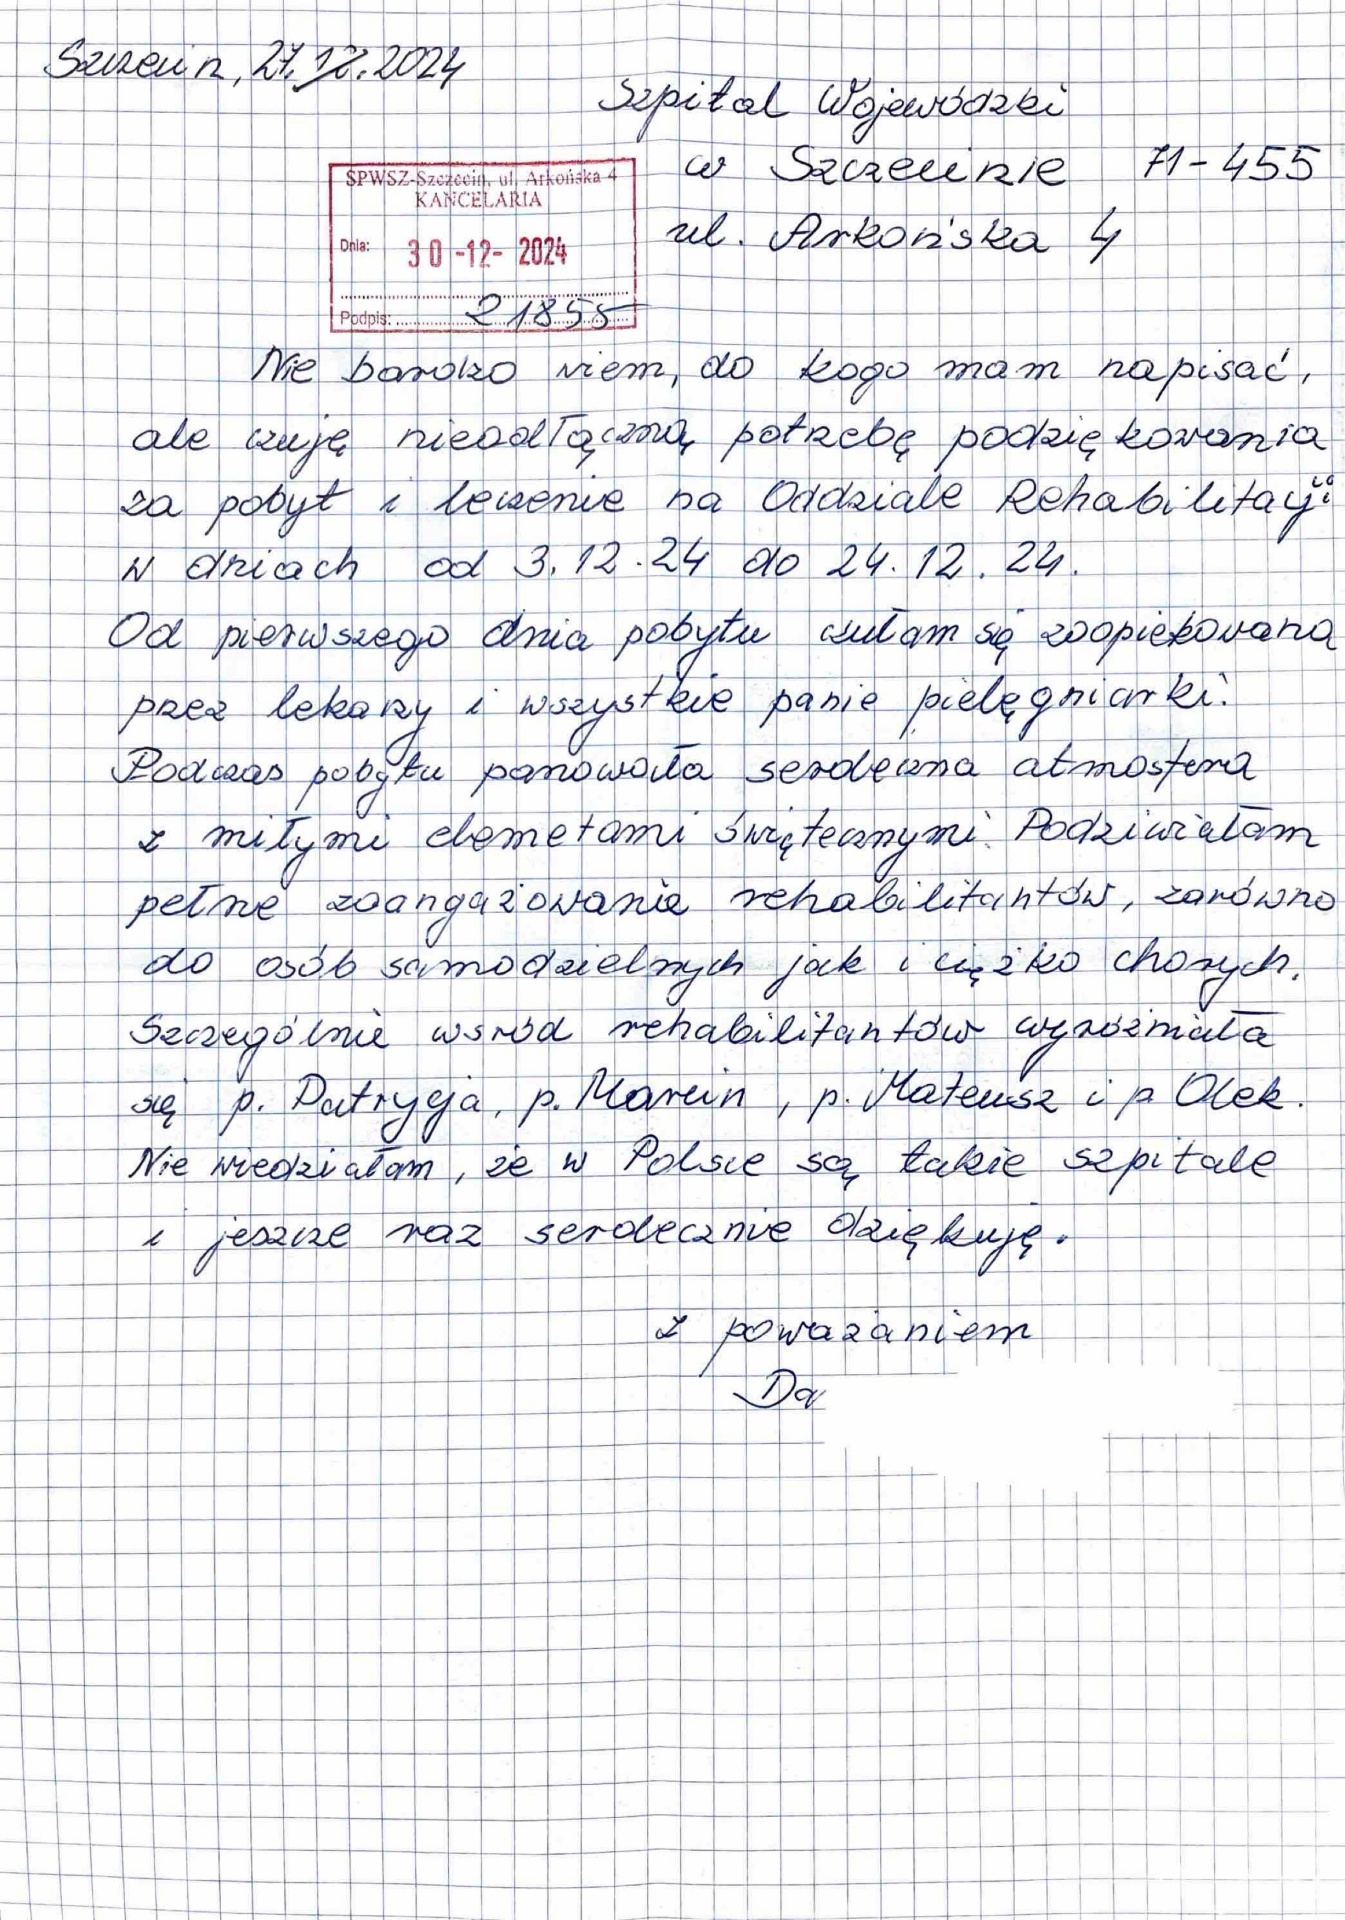 Szczecin, 27.12.2024
Szpital Wojewódzki
w Szczecinie 71-455
ul. Arkońska 4
SPWSZ-Szczecin, ul. Arkońska 4
KANCELARIA
Dnia: 30-12-2024
Podpis: 21855
Nie bardzo wiem, do kogo mam napisać,
ale czuję nieodłączną potrzebę podziękowania
za pobyt i leczenie na Oddziale Rehabilitacji
w dniach od 3.12.24 do 24.12.24.
Od pierwszego dnia pobytu czułam się zaopiekowana
przez lekarzy i wszystkie panie pielęgniarki.
Podczas pobytu panowała serdeczna atmosfera
z miłymi elemetami świętecznymi. Podziwiałam
pełne zaangażowania rehabilitantów, zarówno
do osób samodzielnych jak i ciężko chorych.
Szczególnie wsród rehabilitantów wyróżniała
się p. Patrycja, p. Marcin, p. Mateusz i p Olek.
Nie wiedziałam, że w Polsce są takie szpitale
i jeszcze raz serdecznie dziękuję.
z poważaniem
Da